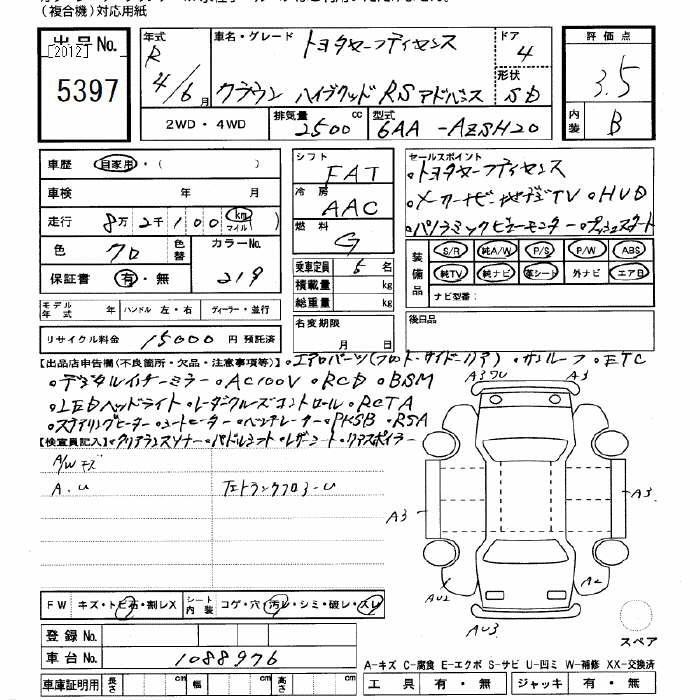 (複合機)対応用紙
出品No. 年式 車名・グレード トヨタセーフティセンス ドア 4 評価点
[2012]
5397 R 4/6月 クラウン ハイブリッド RSアドバンス 形状 SD 3.5
2WD・4WD 排気量 2500 cc 型式 6AA-AZSH20 内装 B
車歴 自家用・( ) シフト FAT セールスポイント
・トヨタセーフティセンス
車検 年 月 冷房 AAC ・メーカーナビ 地デジTV ・HUD
走行 8万2千100 km マイル ( ) 燃料 G ・パノラミックビューモニター ・プッシュスタート
色 クロ 色替 カラーNo. 219 装備品 S/R 純A/W P/S P/W ABS
保証書 有・無 乗車定員 5名 純TV 純ナビ 革シート 外ナビ エアB
積載量 kg ナビ型番:
モデル年式 年 ハンドル 左・右 ディーラー・並行 総重量 kg
リサイクル料金 15000 円 預託済 名変期限 月 日 後日品
【出品店申告欄(不良箇所・欠品・注意事項等)】 ・エアロパーツ(フロント・サイド・リア) ・サンルーフ ・ETC
・デジタルインナーミラー ・AC100V ・RCD ・BSM
・LEDヘッドライト ・レーダークルーズコントロール ・RCTA
・ステアリングヒーター ・シートヒーター ・ベンチレーター ・PKSB ・RSA
【検査員記入】 ・クリアランスソナー ・パドルシフト ・レザーシート ・リアスポイラー
A/Wキズ
A.U
A3 A3
A3 A3
AU2 A2
AU3
FW キズ・トビ石・割レX シート内装 コゲ・穴・汚レ・シミ・破レ・スレ
登録No.
車台No. 1088976
スペア
A-キズ C-腐食 E-エクボ S-サビ U-凹ミ W-補修 XX-交換済
車庫証明用 長さ 幅 高さ 工具 有・無 ジャッキ 有・無